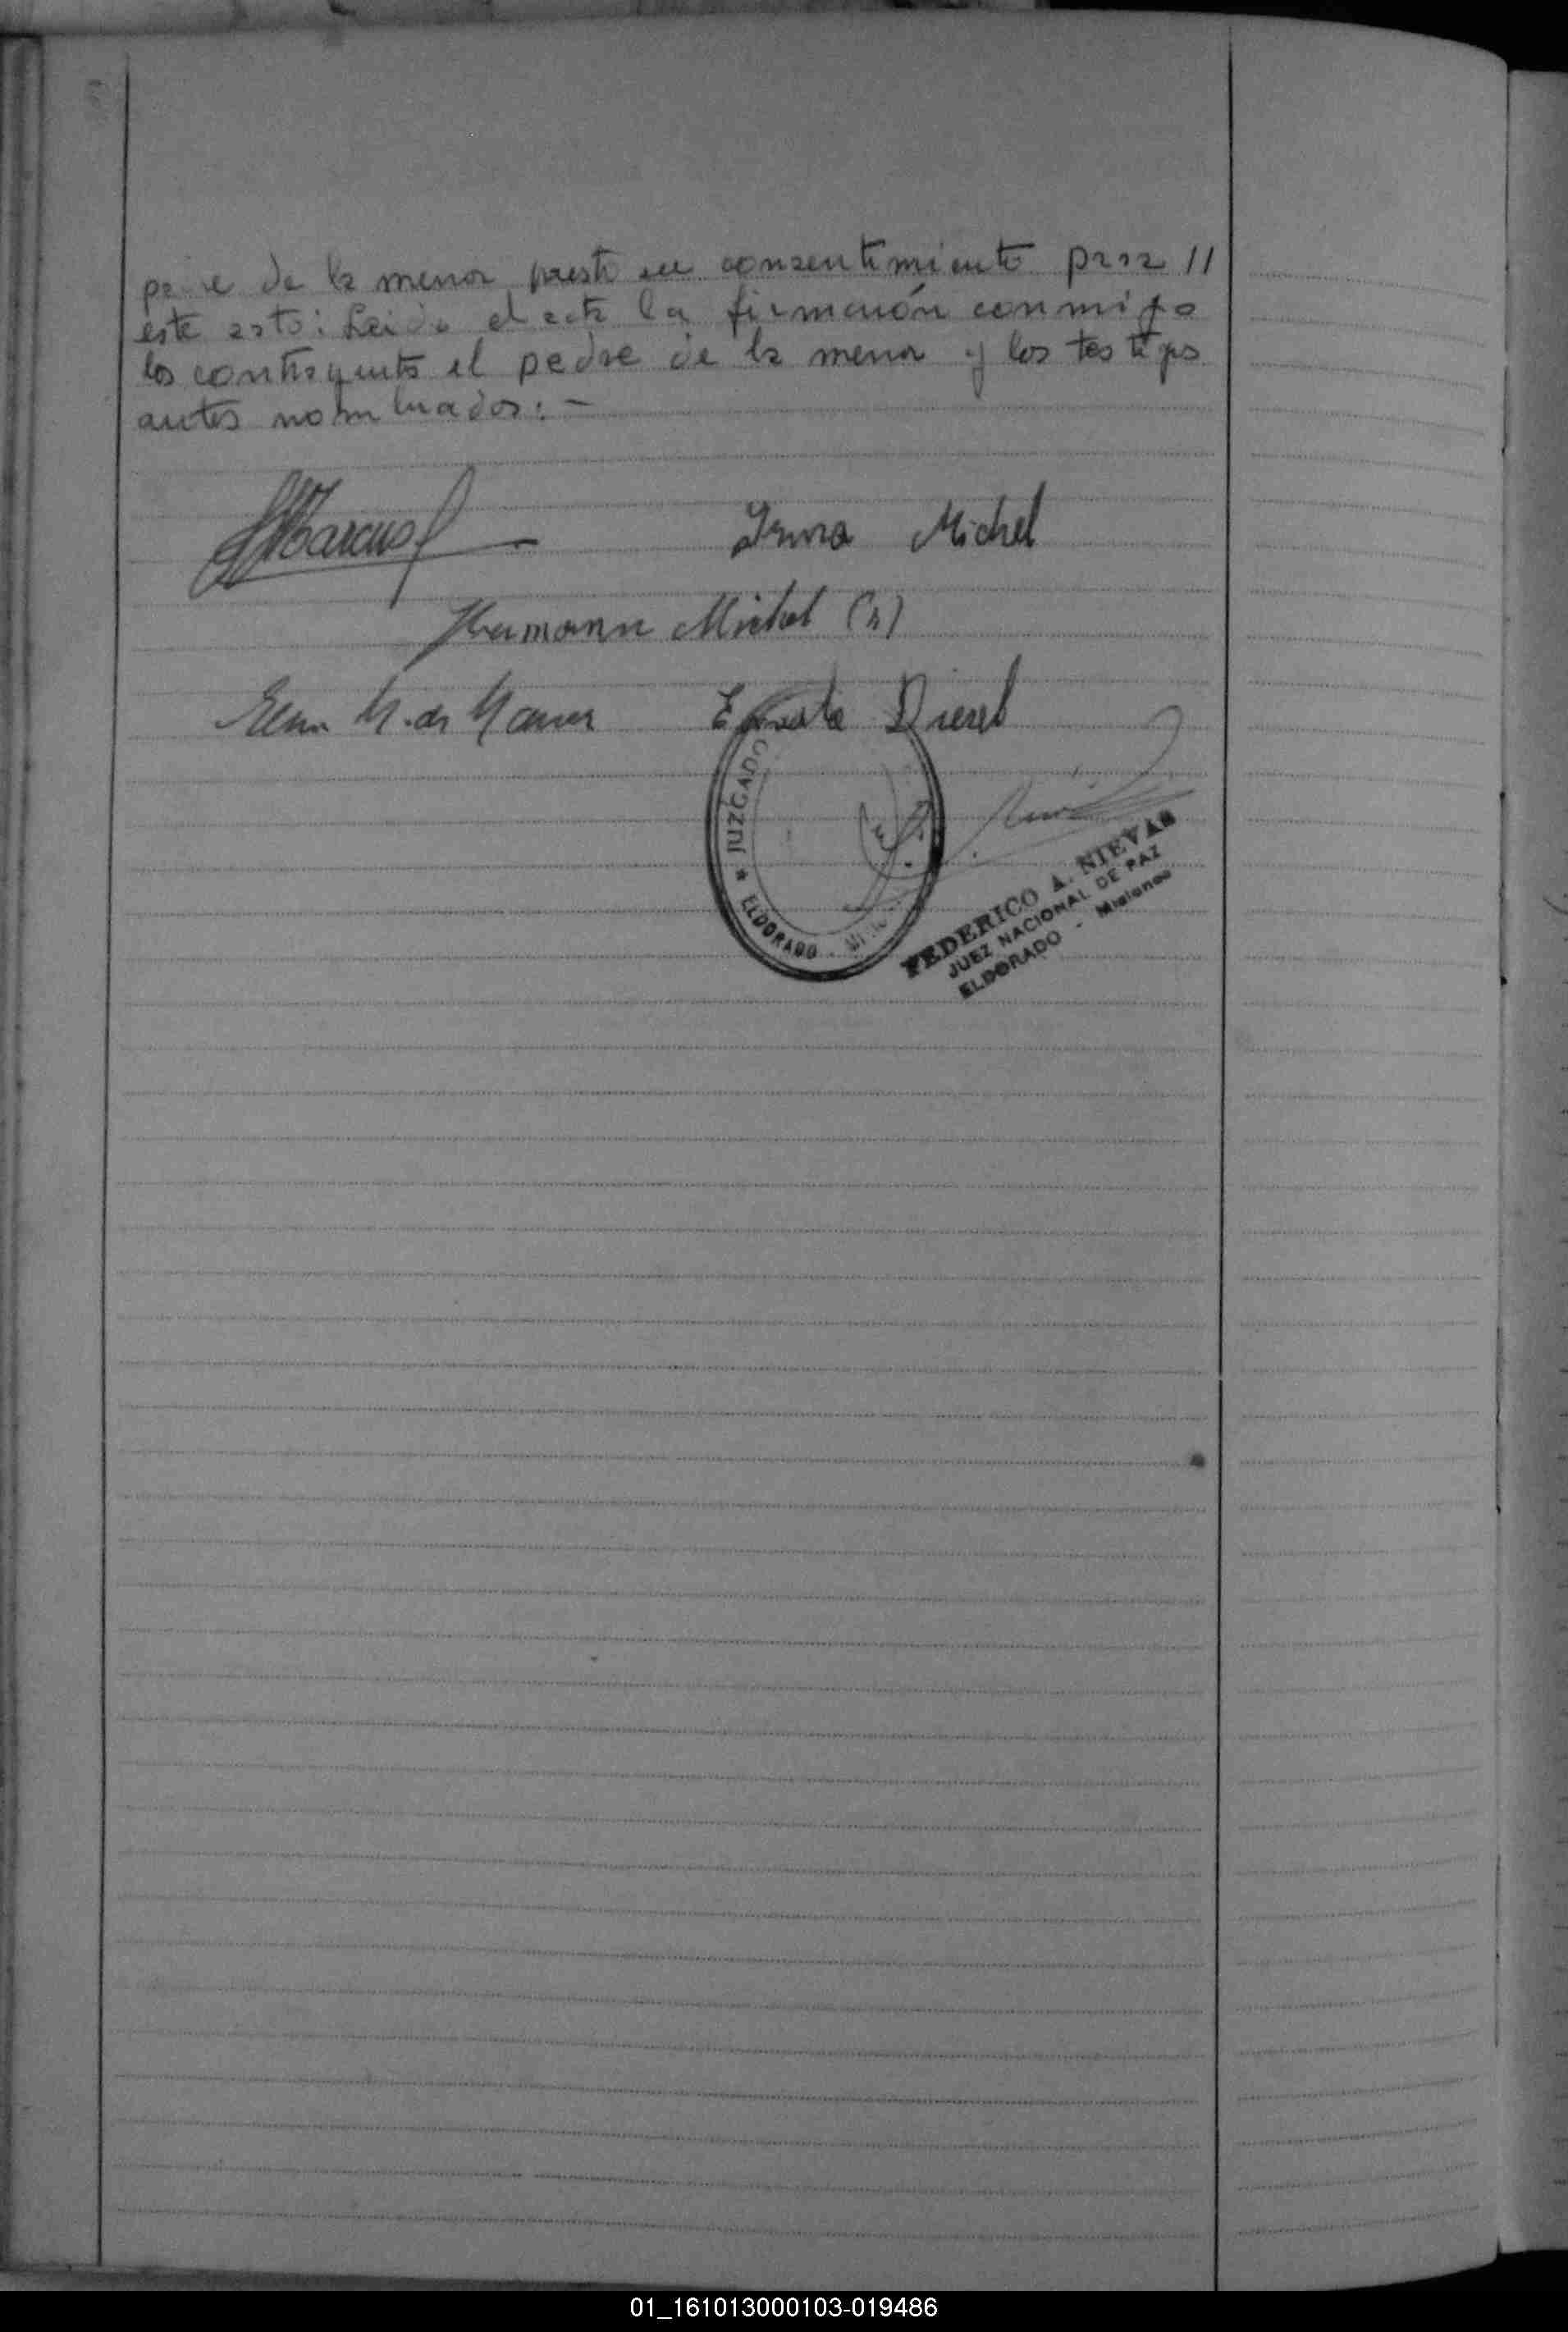 padre de la menor presto su consentimiento para //
este acto: Leida el acta la firmarón conmigo
los contrayents el padre de la menor y los testigos
antes nombrados: -
HMarcus
Irma Michel
Hermann Michel (h)
M. de
Ernesto Diesel
JUZGADO
* ELDORADO
FEDERICO A. NIEVAS
JUEZ NACIONAL DE PAZ
ELDORADO - Misiones
01_161013000103-019486